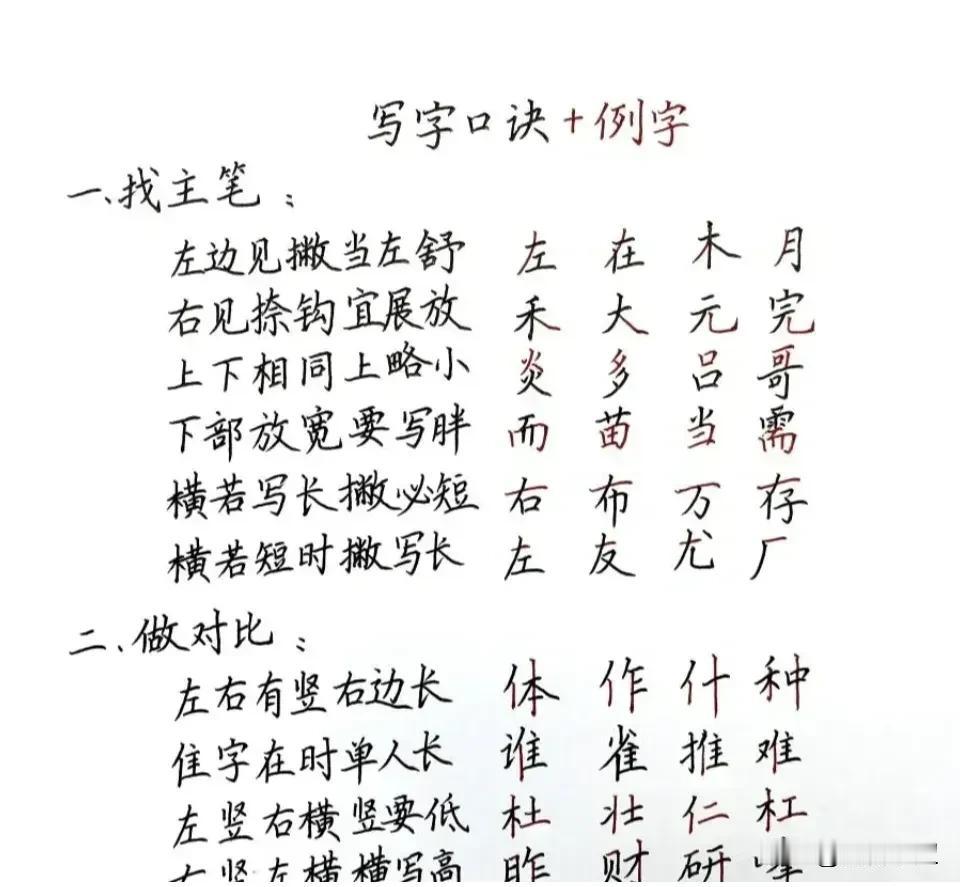 写字口诀+例字
一、找主笔：
左边见撇当左舒 左 在 木 月
右见捺钩宜展放 禾 大 元 完
上下相同上略小 炎 多 吕 哥
下部放宽要写胖 而 苗 当 需
横若写长撇必短 右 布 万 存
横若短时撇写长 左 友 尤 厂
二、做对比：
左右有竖右边长 体 作 什 种
住字在时单人长 谁 雀 推 难
左竖右横竖要低 杜 壮 仁 杠
右竖左横横写高 昨 财 研